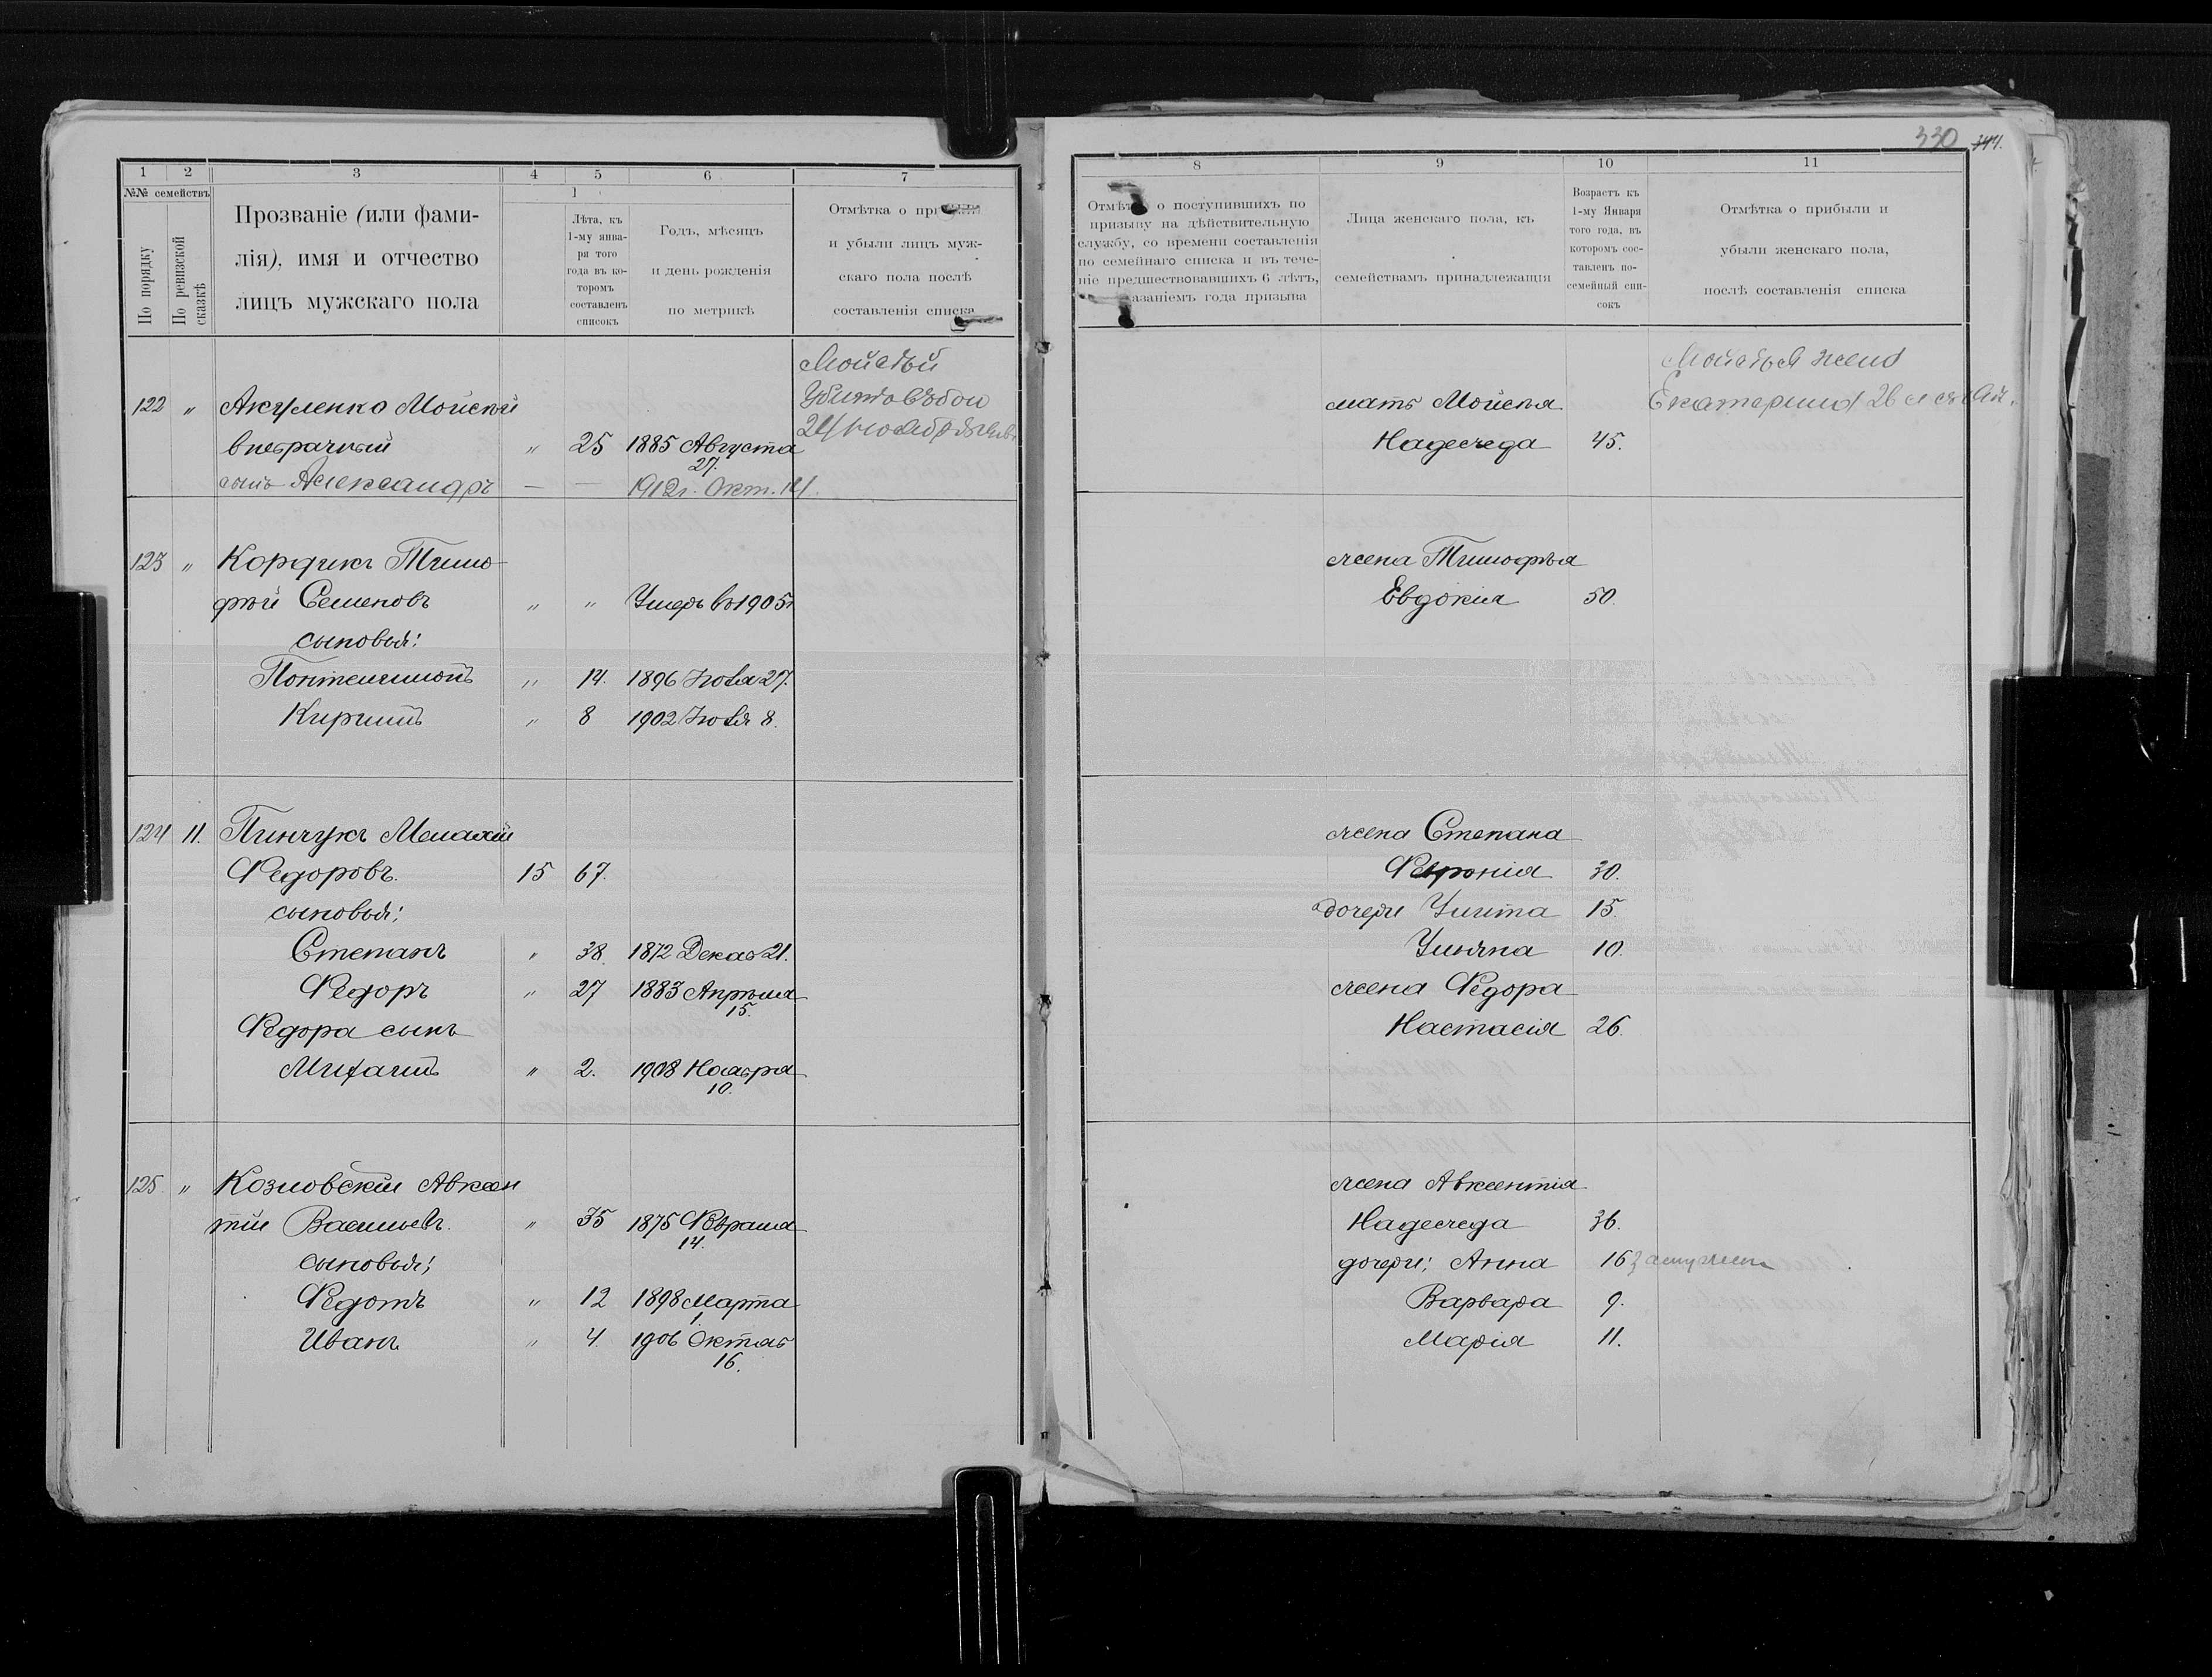 1 2 3 4 5 6 7
№№ семействъ
По порядку
По ревизской сказкѣ
Прозваніе (или фами-
лія), имя и отчество
лицъ мужскаго пола
Лѣта, къ
1-му янва-
ря того
года въ ко-
торомъ
составленъ
списокъ
Годъ, мѣсяцъ
и день рожденія
по метрикѣ
Отмѣтка о
и убыли лицъ муж-
скаго пола послѣ
составленія списка
Мойсѣй
Убитъ въ бою
122 " Акуленко Мойсей
внебрачный " 25 1885 Августа
27.
сынъ Александръ — — 1912г. Окт. 14.
123 " Корфикъ Тимо-
фей Семеновъ " " Умеръ въ 1905г
сыновья:
Пантелимонъ " 14. 1896 Іюля 27.
Кирилъ " 8 1902 Іюля 8.
124 11. Пинчукъ Малахій
Федоровъ. 15 67.
сыновья:
Степанъ " 38. 1872 Декаб 21.
Федоръ " 27 1883 Апрѣля
15.
Федора сынъ
Михаилъ " 2. 1908 Ноября
10.
125 " Козловскій Авксен
тій Васильевъ. " 35 1875 Февраля
14.
сыновья:
Федотъ " 12 1898 Марта
1
Иванъ " 4. 1906 Октяб
16.
330
8 9 10 11
Отмѣтка о поступившихъ по
призыву на дѣйствительную
службу, со времени составленія
по семейнаго списка и въ тече-
ніе предшествовавшихъ 6 лѣтъ,
азаніемъ года призыва
Лица женскаго пола, къ
семействамъ принадлежащія
Возрастъ къ
1-му Января
того года, въ
которомъ сос-
тавленъ по-
семейный спи-
сокъ
Отмѣтка о прибыли и
убыли женскаго пола,
послѣ составленія списка
Мойсѣя жена
мать Мойсея Екатерина 26 л
Надежда 45.
жена Тимофѣя
Евдокія 50.
жена Степана
Февронія 30.
дочери Улита 15.
Ульяна 10.
жена Федора
Настасія 26.
жена Авксентія
Надежда 36.
дочери: Анна 16 замужем
Варвара 9.
Марія 11.